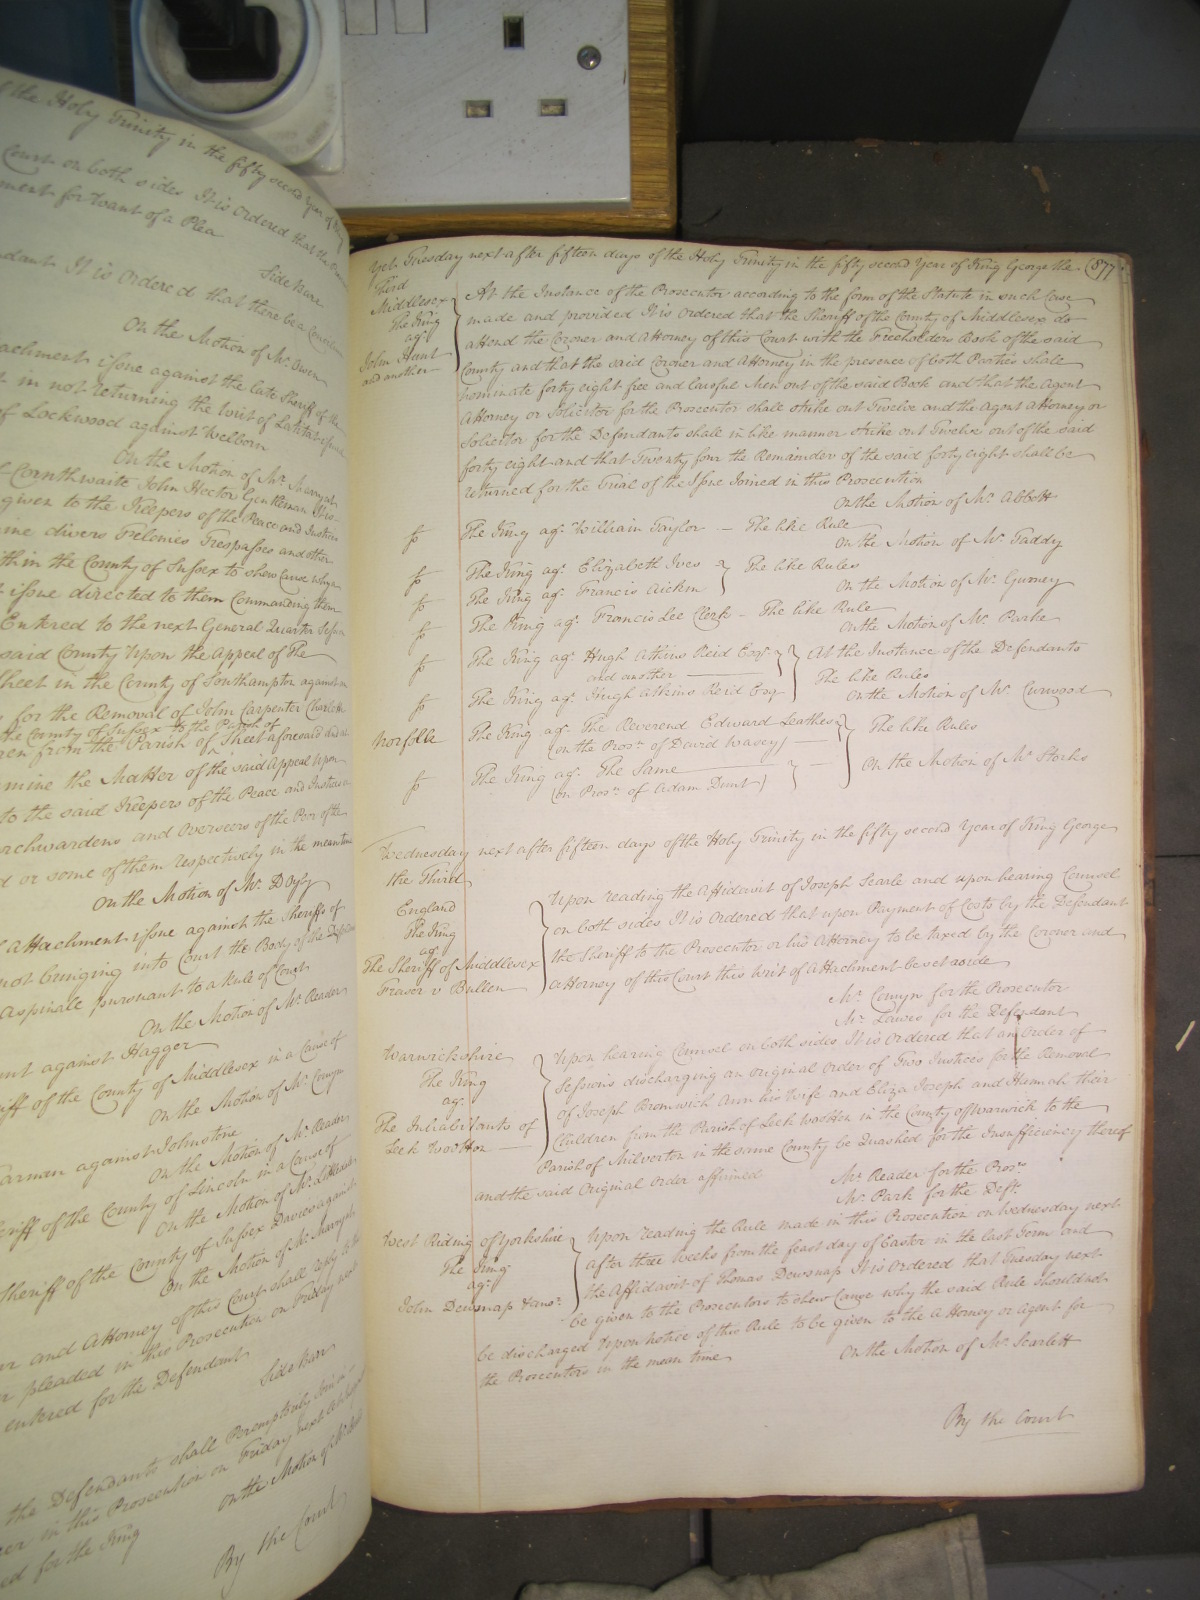 of the Holy Trinity in the fifty second Year of King
Court on both sides It is Ordered that the
ment for want of a Plea
Side Bar
dant It is Ordered that there be a Concilium
On the Motion of Mr. Owen
achment issue against the late Sheriff of the
in not returning the Writ of Latitat issued
of Lockwood against Welborn
On the Motion of Mr. Marryat
Cornthwaite John Hector Gentleman
given to the Keepers of the Peace and Justices
me divers Felonies Trespasses and other
thin the County of Sussex to shew Cause why a
issue directed to them Commanding them
Entered to the next General Quarter Sessn
said County upon the Appeal of The
Sheet in the County of Southampton against an
for the Removal of John Carpenter Charlotte
the County of Sussex to the Parish of
ren from the Parish of Sheet aforesaid and
mine the Matter of the said Appeal upon
to the said Keepers of the Peace and Justices
rchwardens and Overseers of the Poor of the
d or some of them respectively in the mean time
On the Motion of Mr. D'Oyly
Attachment issue against the Sheriffs of
not bringing into Court the Body of the Defendant
Aspinale pursuant to a Rule of Court
On the Motion of Mr. Reader
nt against Hagger
riff of the County of Middlesex in a Cause of
On the Motion of Mr. Comyn
arman against Johnstone
On the Motion of Mr. Reader
eriff of the County of Lincoln in a Cause of
On the Motion of Mr.
Sheriff of the County of Sussex Davies against
On the Motion of Mr. Marryat
r and Attorney of this Court shall
r pleaded in this Prosecution on Friday next
entered for the Defendant
Side Bar
the Defendants shall Peremptorily
er in this Prosecution on Friday next
ed for the King
On the Motion of Mr.
By the Court
Yet Tuesday next after fifteen days of the Holy Trinity in the fifty second Year of King George the (877)
Third
Middlesex
The King
agt
John Hant
and another
At the Instance of the Prosecutor according to the form of the Statute in such Case
made and provided It is Ordered that the Sheriff of the County of Middlesex do
attend the Coroner and Attorney of this Court with the Freeholders Book of the said
County and that the said Coroner and Attorney in the presence of both Parties shall
nominate forty eight free and Lawful Men out of the said Book and that the Agent
Attorney or Solicitor for the Prosecutor shall strike out Twelve and the Agent Attorney or
Solicitor for the Defendants shall in like manner strike out Twelve out of the said
forty eight and that Twenty four the Remainder of the said forty eight shall be
returned for the Trial of the Issue Joined in this Prosecution
On the Motion of Mr. Abbott
The King agt. William Taylor — The like Rule
On the Motion of Mr. Taddy
The King agt. Elizabeth Ives
The King agt. Francis Aickin
The like Rules
On the Motion of Mr. Gurney
The King agt. Francis Lee Clerk — The like Rule
On the Motion of Mr. Parke
The King agt. Hugh Atkins Reid Esqr.
and another
The King agt. Hugh Atkins Reid Esqr
At the Instance of the Defendants
The like Rules
On the Motion of Mr. Curwood
Norfolk
The King agt. The Reverend Edward Leathes
(on the Prosn. of David Wasey)
The King agt. The Same
(on Prosn. of Adam Dunt)
The like Rules
On the Motion of Mr. Storks
Wednesday next after fifteen days of the Holy Trinity in the fifty second Year of King George
the Third
England
The King
agt
The Sheriff of Middlesex
Fraser v Bullen
Upon reading the Affidavit of Joseph Searle and upon hearing Counsel
on both sides It is Ordered that upon Payment of Costs by the Defendant
the Sheriff to the Prosecutor or his Attorney to be taxed by the Coroner and
Attorney of this Court this Writ of Attachment be set aside
Mr. Comyn for the Prosecutor
Mr. Lawes for the Defendant
Warwickshire
The King
agt
The Inhabitants of
Leek Wootton
Upon hearing Counsel on both sides It is Ordered that an Order of
Sessions discharging an Original Order of Two Justices for the Removal
of Joseph Bromwich Ann his Wife and Eliza Joseph and Hannah their
Children from the Parish of Leek Wootten in the County of Warwick to the
Parish of Milverton in the same County be Quashed for the Insufficiency thereof
and the said Original Order affirmed
Mr. Reader for the Prosr.
Mr. Park for the Deft.
West Riding of Yorkshire
The King
agt
John Dewsnap & anor.
Upon reading the Rule made in this Prosecution on Wednesday next
after three Weeks from the feast day of Easter in the last Term and
the Affidavit of Thomas Dewsnap It is Ordered that Tuesday next
be given to the Prosecutors to shew Cause why the said Rule should not
be discharged Upon notice of this Rule to be given to the Attorney or Agent for
the Prosecutors in the mean time
On the Motion of Mr. Scarlett
By the Court